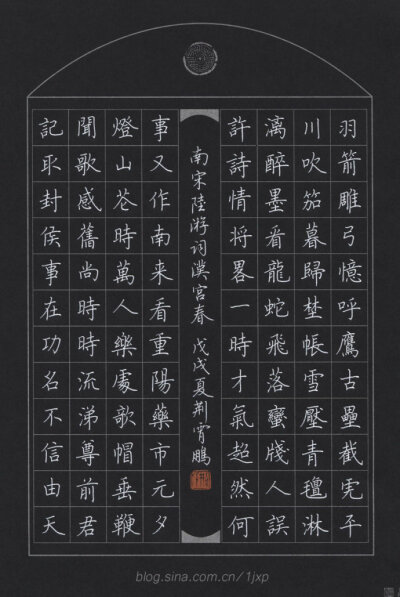 羽箭雕弓憶呼鷹古壘截虎平
川吹笳暮歸埜帳雪壓青氊淋
漓醉墨看龍蛇飛落蠻牋人誤
許詩情将畧一時才氣超然何
南宋陸游詞漢宮春 戊戌夏荊霄鵬
事又作南来看重陽藥市元夕
燈山花時萬人樂處欹帽垂鞭
聞歌感舊尚時時流涕尊前君
記取封侯事在功名不信由天
blog.sina.com.cn/1jxp